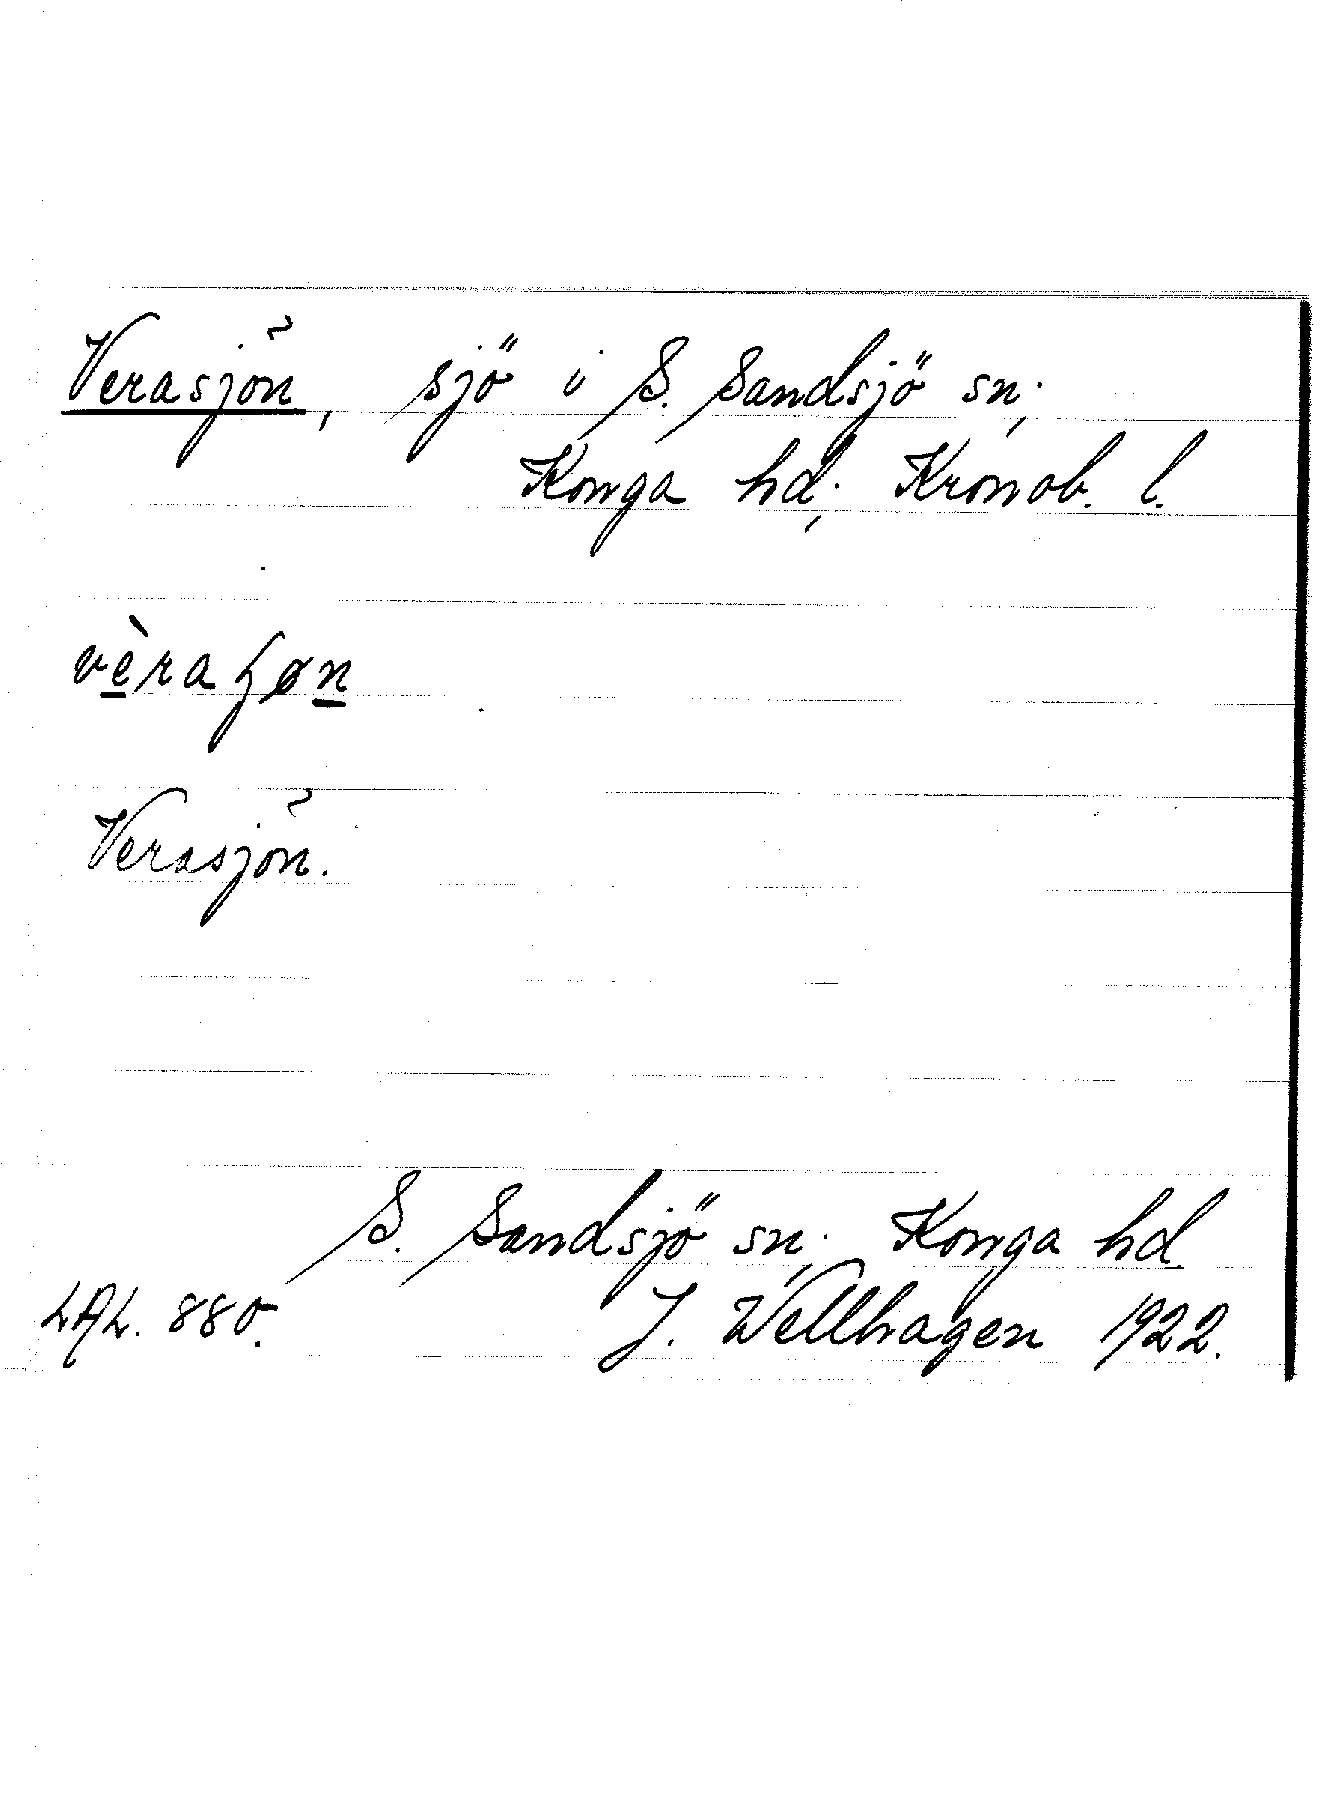 Verasjön, sjö i S. Sandsjö sn;
Konga hd; Kronob. l.
vèraʂøn
Verasjön.
S. Sandsjö sn; Konga hd
LAL. 880. J. Wellhagen 1922.